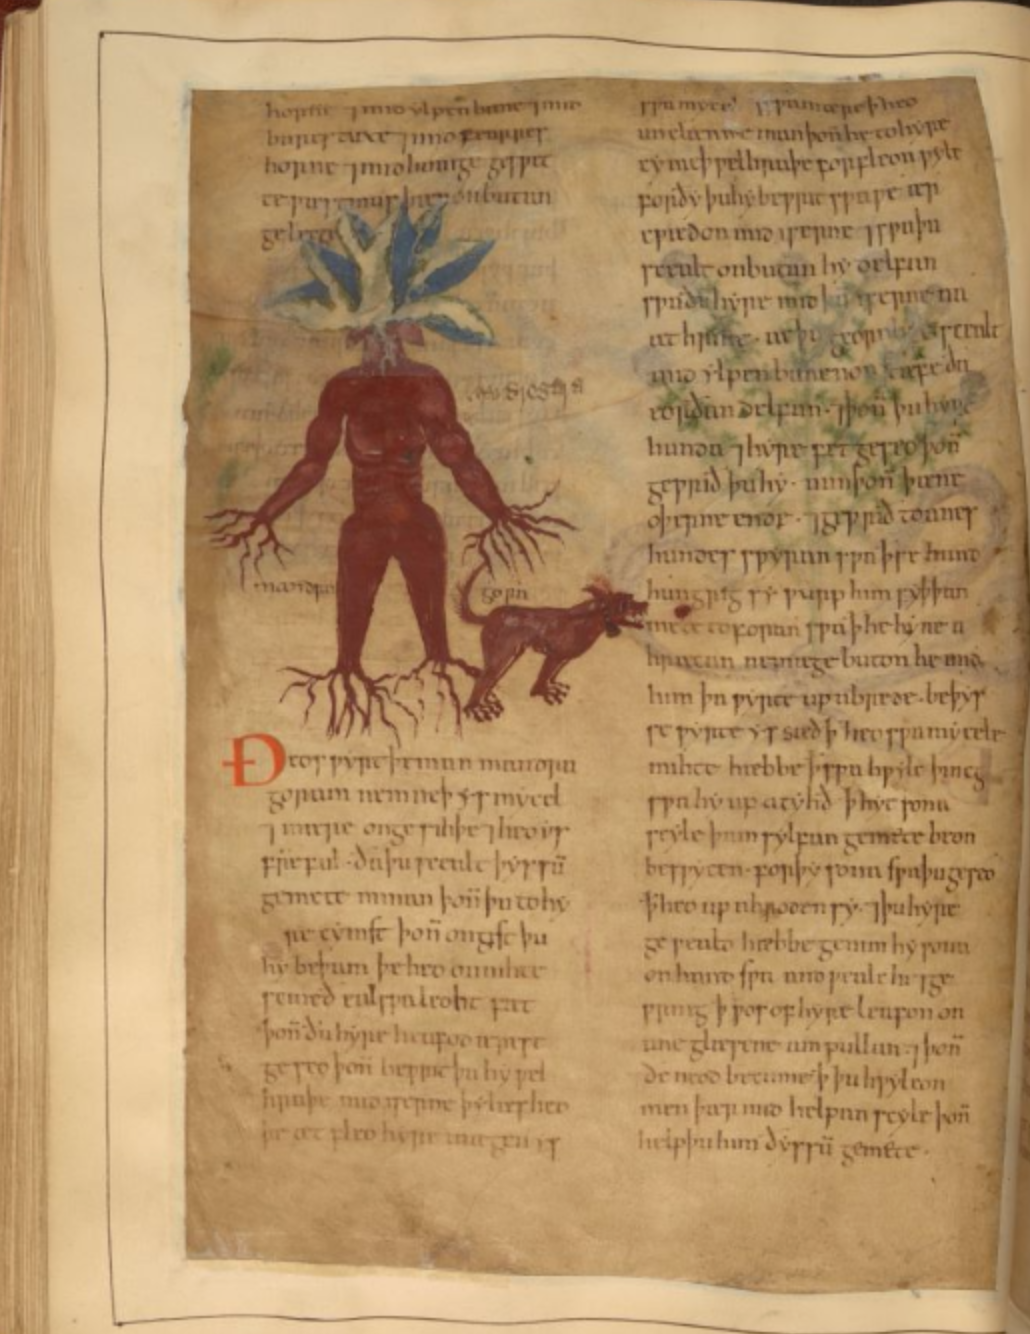 horne ⁊ mid ylpen bane ⁊ mid
horne ⁊ mid hunige
Ðeos wyrt þe man mandra
goram nemneþ ys mycel
⁊ mære on gesihþe ⁊ heo ys
fremful · ða þu scealt þyssū
gemete niman þoñ þu to hy
re cymst þoñ ongist þu
hy be þam þe heo on nihte
scineð ealswa leoht fæt
þoñ ðu hyre heafod ærest
geseo þoñ bewrit þu hy wel
hraþe mid iserne þy læs heo
þe æt fleo hyre mægen ys
swa mycel ⁊ swa mære ꝥ heo
unclænne man þoñ he to hyre
cymeþ wel hraþe forfleon wyle
forðy þu hy bewrit swa we ær
cwædon mid iserne ⁊ swa þu
scealt onbutan hy delfan
swa ðu hyre mid þā iserne na
æt hrine · ac þu scealt
mid ylpenbanenon stæfe ða
eorðan delfan · ⁊ þoñ þu hyre
handa ⁊ hyre fet geseo þoñ
gewrið þu hy · nim þoñ þæne
oþerne ende · ⁊ gewrið to anes
hundes swyran swa ꝥ se hund
hungrig sy wurp him syþþan
mete toforan swa ꝥ he hyne a
hræcan ne mæge buton he mid
him þa wyrte up abrede · be þys
se wyrte ys sæd ꝥ heo swa mycele
mihte hæbbe ꝥ swa hwylc þincg
swa hy up atyhð ꝥ hyt sona
scyle þam sylfan gemete beon
beswycen · forþy sona swa þu geseo
ꝥ heo up abroden sy · ⁊ þu hyre
geweald hæbbe genim hy sona
on hand swa
wring ꝥ wos of hyre leafon on
ane glæsene ampullan ⁊ þoñ
ðe neod becume ꝥ þu hwylcon
men þær mid helpan scyle þoñ
help þu him ðyssū gemete ·